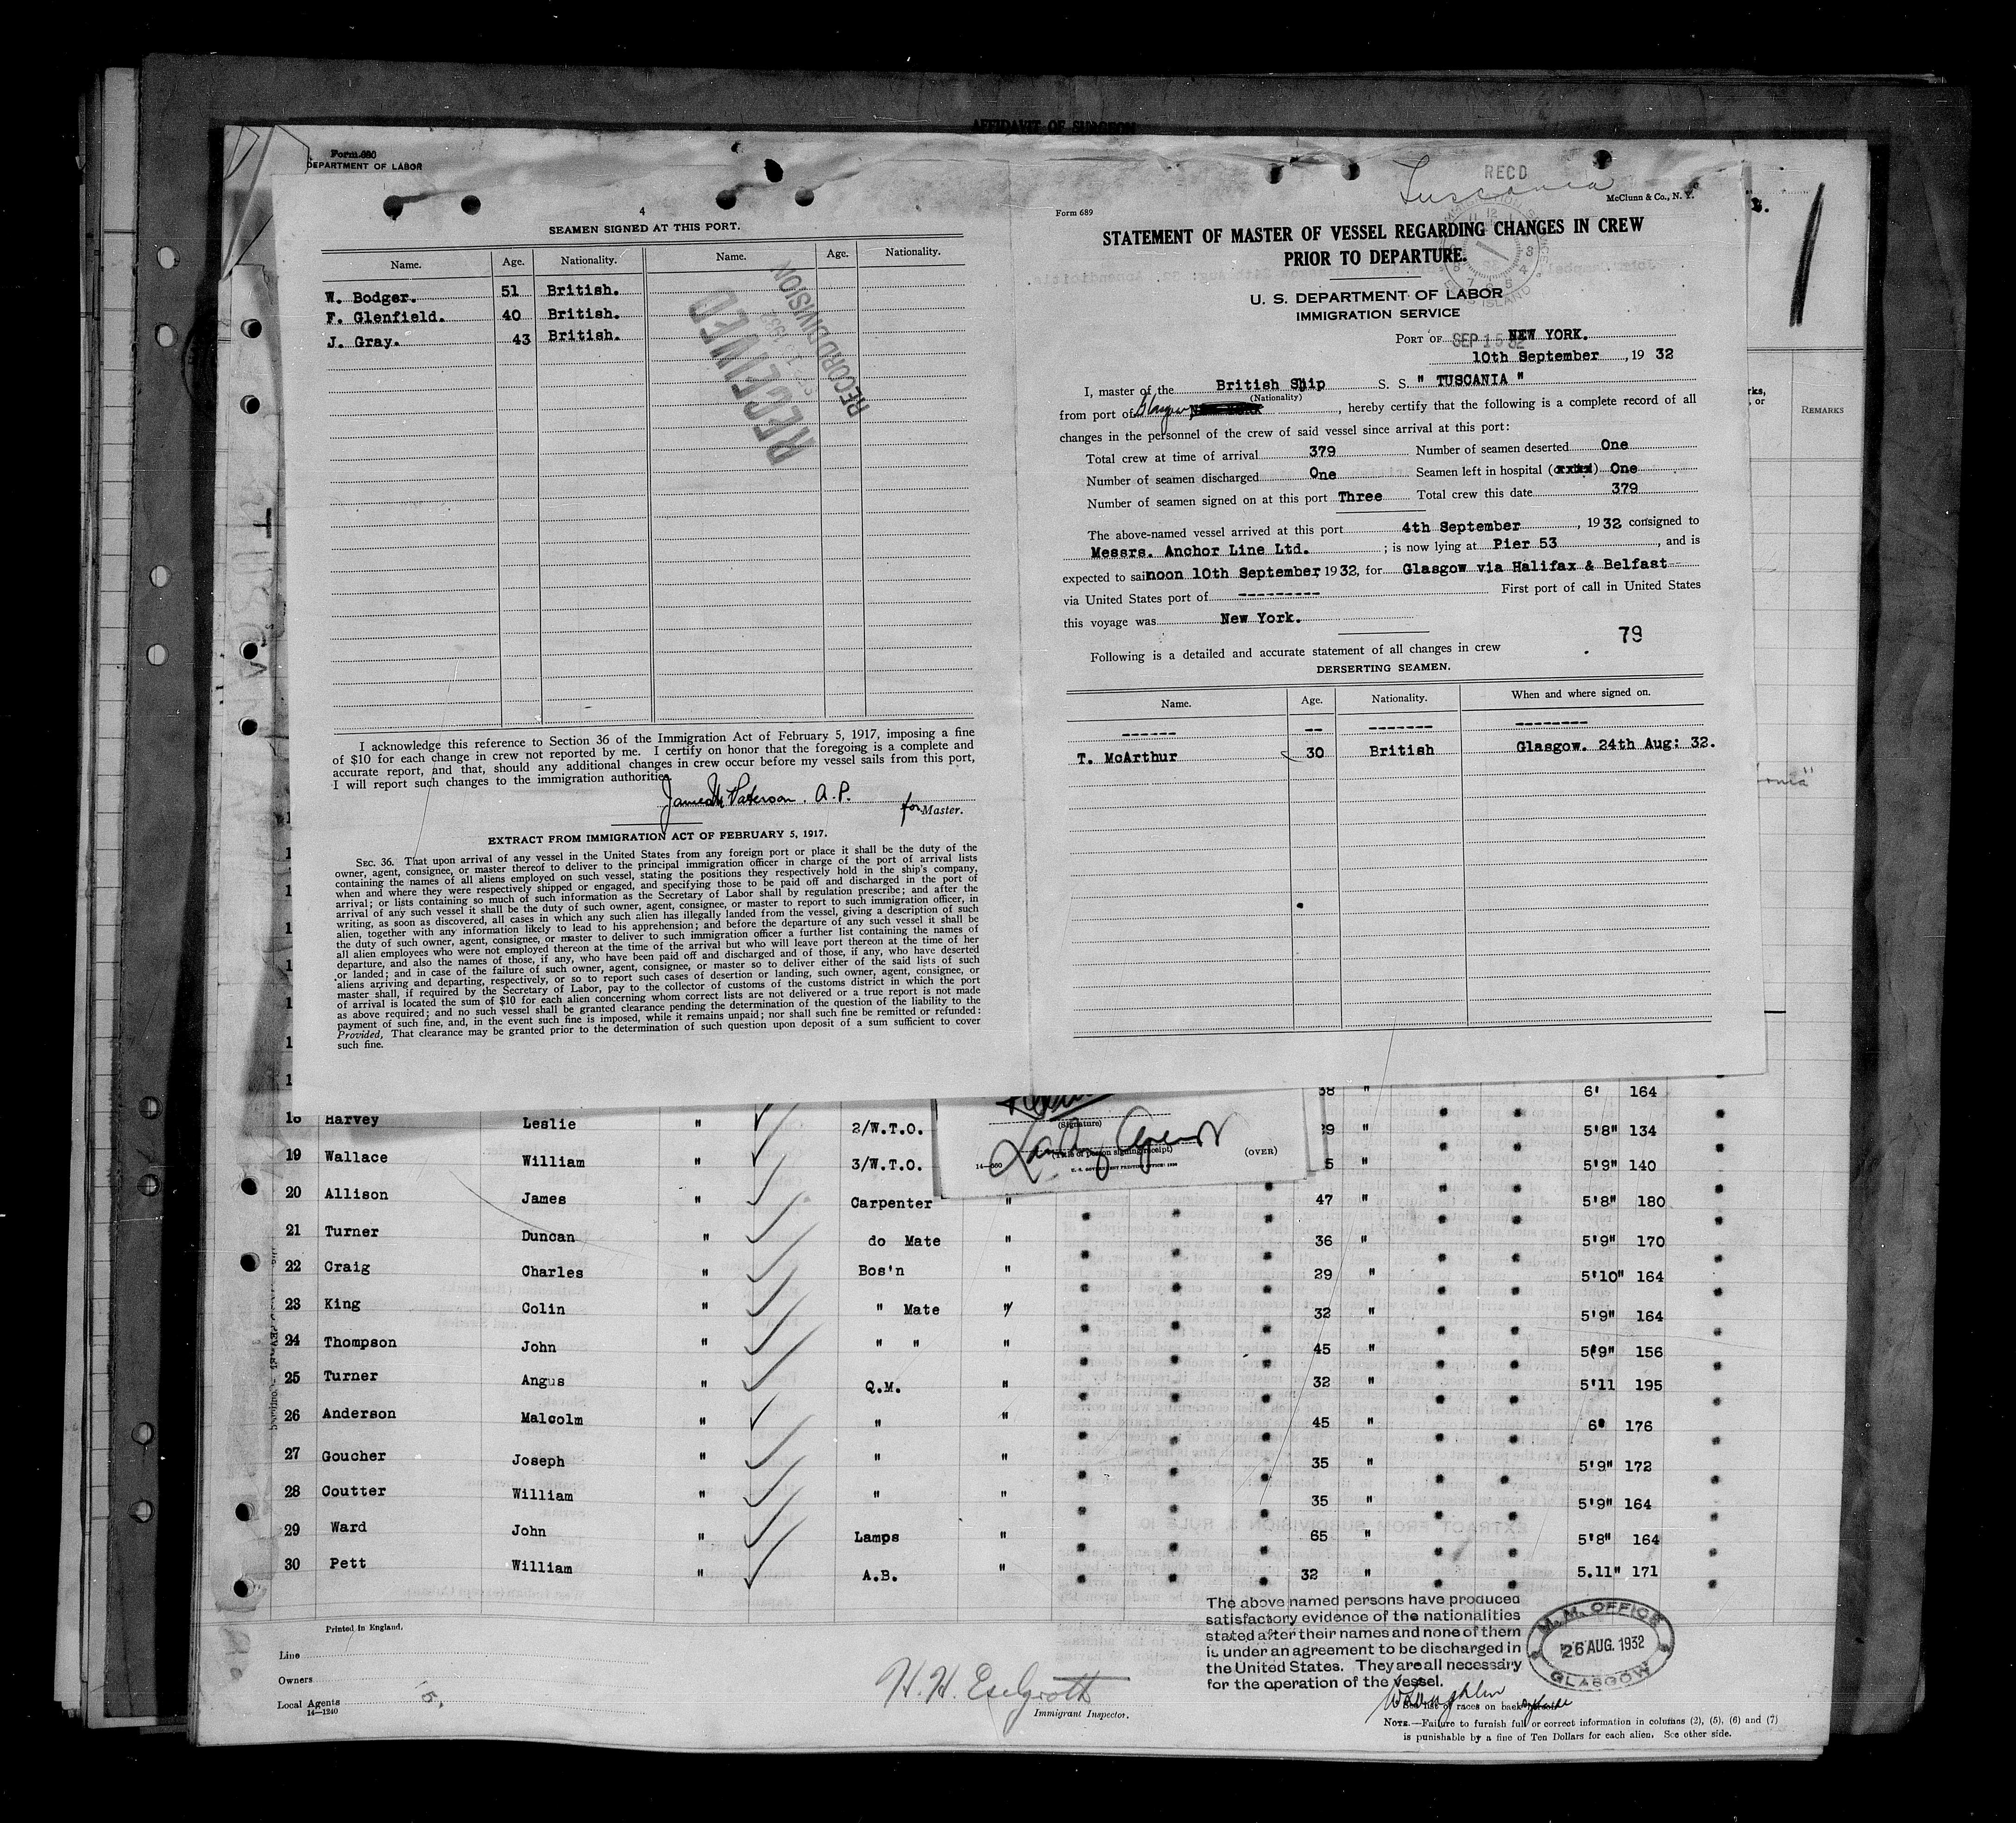 AFFIDAVIT OF SURGEON
Form 680
DEPARTMENT OF LABOR
4
SEAMEN SIGNED AT THIS PORT.
Name. Age. Nationality. Name. Age. Nationality.
W. Bodger. 51 British.
F. Glenfield. 40 British.
J. Gray. 43 British.
RECEIVED
RECORD DIVISION
I acknowledge this reference to Section 36 of the Immigration Act of February 5, 1917, imposing a fine
of $10 for each change in crew not reported by me. I certify on honor that the foregoing is a complete and
accurate report, and that, should any additional changes in crew occur before my vessel sails from this port,
I will report such changes to the immigration authorities.
James M Paterson. A.P. for Master.
EXTRACT FROM IMMIGRATION ACT OF FEBRUARY 5, 1917.
SEC. 36. That upon arrival of any vessel in the United States from any foreign port or place it shall be the duty of the
owner, agent, consignee, or master thereof to deliver to the principal immigration officer in charge of the port of arrival lists
containing the names of all aliens employed on such vessel, stating the positions they respectively hold in the ship's company,
when and where they were respectively shipped or engaged, and specifying those to be paid off and discharged in the port of
arrival; or lists containing so much of such information as the Secretary of Labor shall by regulation prescribe; and after the
arrival of any such vessel it shall be the duty of such owner, agent, consignee, or master to report to such immigration officer, in
writing, as soon as discovered, all cases in which any such alien has illegally landed from the vessel, giving a description of such
alien, together with any information likely to lead to his apprehension; and before the departure of any such vessel it shall be
the duty of such owner, agent, consignee, or master to deliver to such immigration officer a further list containing the names of
all alien employees who were not employed thereon at the time of the arrival but who will leave port thereon at the time of her
departure, and also the names of those, if any, who have been paid off and discharged and of those, if any, who have deserted
or landed; and in case of the failure of such owner, agent, consignee, or master so to deliver either of the said lists of such
aliens arriving and departing, respectively, or so to report such cases of desertion or landing, such owner, agent, consignee, or
master shall, if required by the Secretary of Labor, pay to the collector of customs of the customs district in which the port
of arrival is located the sum of $10 for each alien concerning whom correct lists are not delivered or a true report is not made
as above required; and no such vessel shall be granted clearance pending the determination of the question of the liability to the
payment of such fine, and, in the event such fine is imposed, while it remains unpaid; nor shall such fine be remitted or refunded:
Provided, That clearance may be granted prior to the determination of such question upon deposit of a sum sufficient to cover
such fine.
Tuscania
RECD
Form 689
McClunn & Co., N. Y.
STATEMENT OF MASTER OF VESSEL REGARDING CHANGES IN CREW
PRIOR TO DEPARTURE.
U. S. DEPARTMENT OF LABOR
IMMIGRATION SERVICE
PORT OF NEW YORK.
SEP 15 32
10th September, 1932
I, master of the British Ship S. S. " TUSCANIA "
(Nationality)
from port of Glasgow, hereby certify that the following is a complete record of all
changes in the personnel of the crew of said vessel since arrival at this port:
Total crew at time of arrival 379 Number of seamen deserted One
Number of seamen discharged One Seamen left in hospital (xxxxx) One
Number of seamen signed on at this port Three Total crew this date 379
The above-named vessel arrived at this port 4th September, 1932 consigned to
Messrs. Anchor Line Ltd. ; is now lying at Pier 53, and is
expected to sail noon 10th September, 1932, for Glasgow via Halifax & Belfast
via United States port of --------- First port of call in United States
this voyage was New York.
79
Following is a detailed and accurate statement of all changes in crew
DERSERTING SEAMEN.
Name. Age. Nationality. When and where signed on.
------ -- ------- --------
T. McArthur 30 British Glasgow. 24th Aug: 32.
REMARKS
38 " 6' 164
18 Harvey Leslie " 2/W.T.O. " 5'8" 134
19 Wallace William " 3/W.T.O. " 5'9" 140
(Signature)
Landing Agent
(Title of person signing receipt)
(OVER)
20 Allison James " Carpenter " 47 " 5'8" 180
21 Turner Duncan " do Mate " 36 " 5'9" 170
22 Craig Charles " Bos'n " 29 " 5'10" 164
23 King Colin " " Mate " 32 " 5'9" 164
24 Thompson John " " " " 45 " 5'9" 156
25 Turner Angus " Q.M. " 32 " 5'11 195
26 Anderson Malcolm " " " 45 " 6' 176
27 Goucher Joseph " " " 35 " 5'9" 172
28 Coutter William " " " 35 " 5'9" 164
29 Ward John " Lamps " 65 " 5'8" 164
30 Pett William " A.B. " 32 " 5.11" 171
Printed in England.
Line
Owners
Local Agents
14—1240
H. H. Eselgroth
Immigrant Inspector.
The above named persons have produced
satisfactory evidence of the nationalities
stated after their names and none of them
is under an agreement to be discharged in
the United States. They are all necessary
for the operation of the vessel.
M.M. OFFICE
26 AUG. 1932
GLASGOW
See list of races on back
NOTE.—Failure to furnish full or correct information in columns (2), (5), (6) and (7)
is punishable by a fine of Ten Dollars for each alien. See other side.